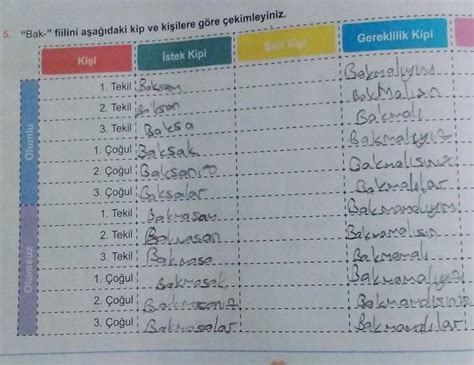 5. "Bak-" fiilini aşağıdaki kip ve kişilere göre çekimleyiniz.
Kişi İstek Kipi Şart Kipi Gereklilik Kipi
Olumlu
1. Tekil Baksam Bakmalıyım
2. Tekil Baksan Bakmalısın
3. Tekil Baksa Bakmalı
1. Çoğul Baksak Bakmalıyız
2. Çoğul Bakmalısınız
3. Çoğul Baksalar Bakmalılar
Olumsuz
1. Tekil Bakmasam Bakmamalıyım
2. Tekil Bakmasan Bakmamalısın
3. Tekil Bakmasa Bakmamalı
1. Çoğul Bakmasak Bakmamalıyız
2. Çoğul
3. Çoğul Bakmasalar